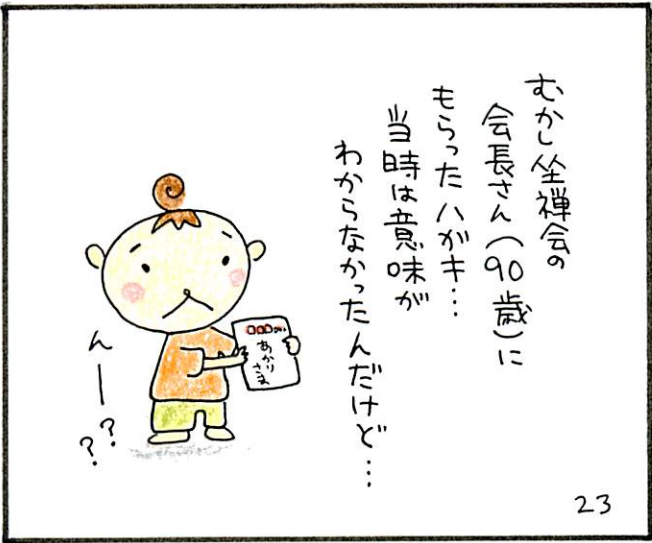 むかし坐禅会の
会長さん(90歳)に
もらったハガキ…
当時は意味が
わからなかったんだけど…
あかり
さま
んー??
23